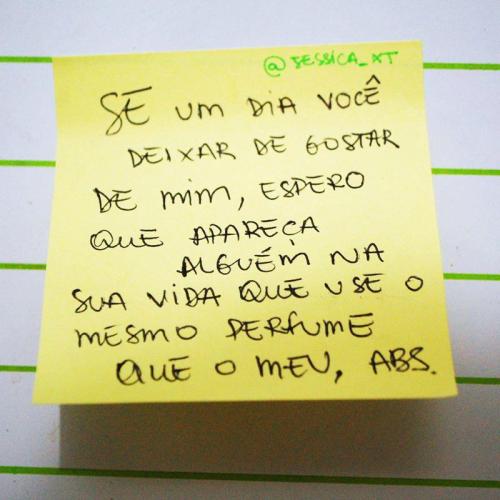 @JESSICA_XT
SE UM DIA VOCÊ
DEIXAR DE GOSTAR
DE mim, ESPERO
QUE APAREÇA
ALGUÉM NA
SUA VIDA QUE USE O
MESMO PERFUME
QUE O MEU, ABS.